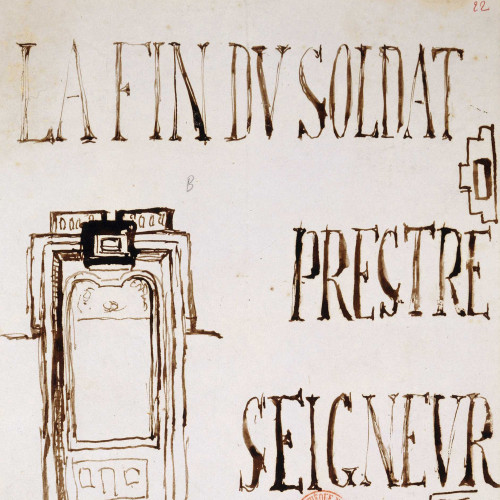 22
LA FIN DV SOLDAT
B
PRESTRE
SEIGNEVR